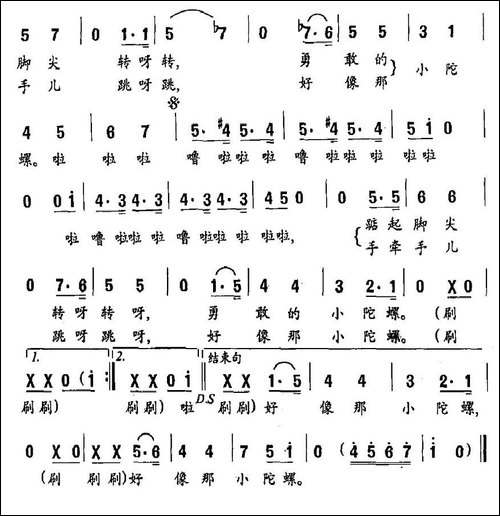 5 7 | 0 1·1 | 5 ♭7 | 0 ♭7·6 | 5 5 | 3 1 |
脚 尖 转 呀 转, 勇 敢 的 小 陀
手 儿 跳 呀 跳, 好 像 那
4 5 | 6 7 | 5·♯4 5·4 | 5·♯4 5·4 | 5 i 0 |
螺。啦 啦 啦 噜 啦啦 啦 噜啦 啦啦 啦啦
0 0 i | 4·3 4·3 | 4·3 4·3 | 4 5 0 | 0 5·5 | 6 6 |
啦 噜 啦啦 啦 噜 啦啦 啦 啦啦, 踮 起 脚 尖
手 牵 手 儿
0 7·6 | 5 5 | 0 1·5 | 4 4 | 3 2·1 | 0 X 0 |
转 呀 转 呀, 勇 敢 的 小 陀 螺。 (刷
跳 呀 跳 呀, 好 像 那 小 陀 螺。 (刷
1. 2. 结束句
X X 0 (i :‖ X X 0 i ‖ X X 0 1·5 | 4 4 | 3 2·1 |
D.S
刷刷) 刷刷) 啦 刷刷) 好 像 那 小 陀 螺,
0 X 0 | X X 5·6 | 4 4 | 7 5 i | 0 (4 5 6 7 | i 0) ‖
(刷 刷刷)好 像 那 小 陀 螺。